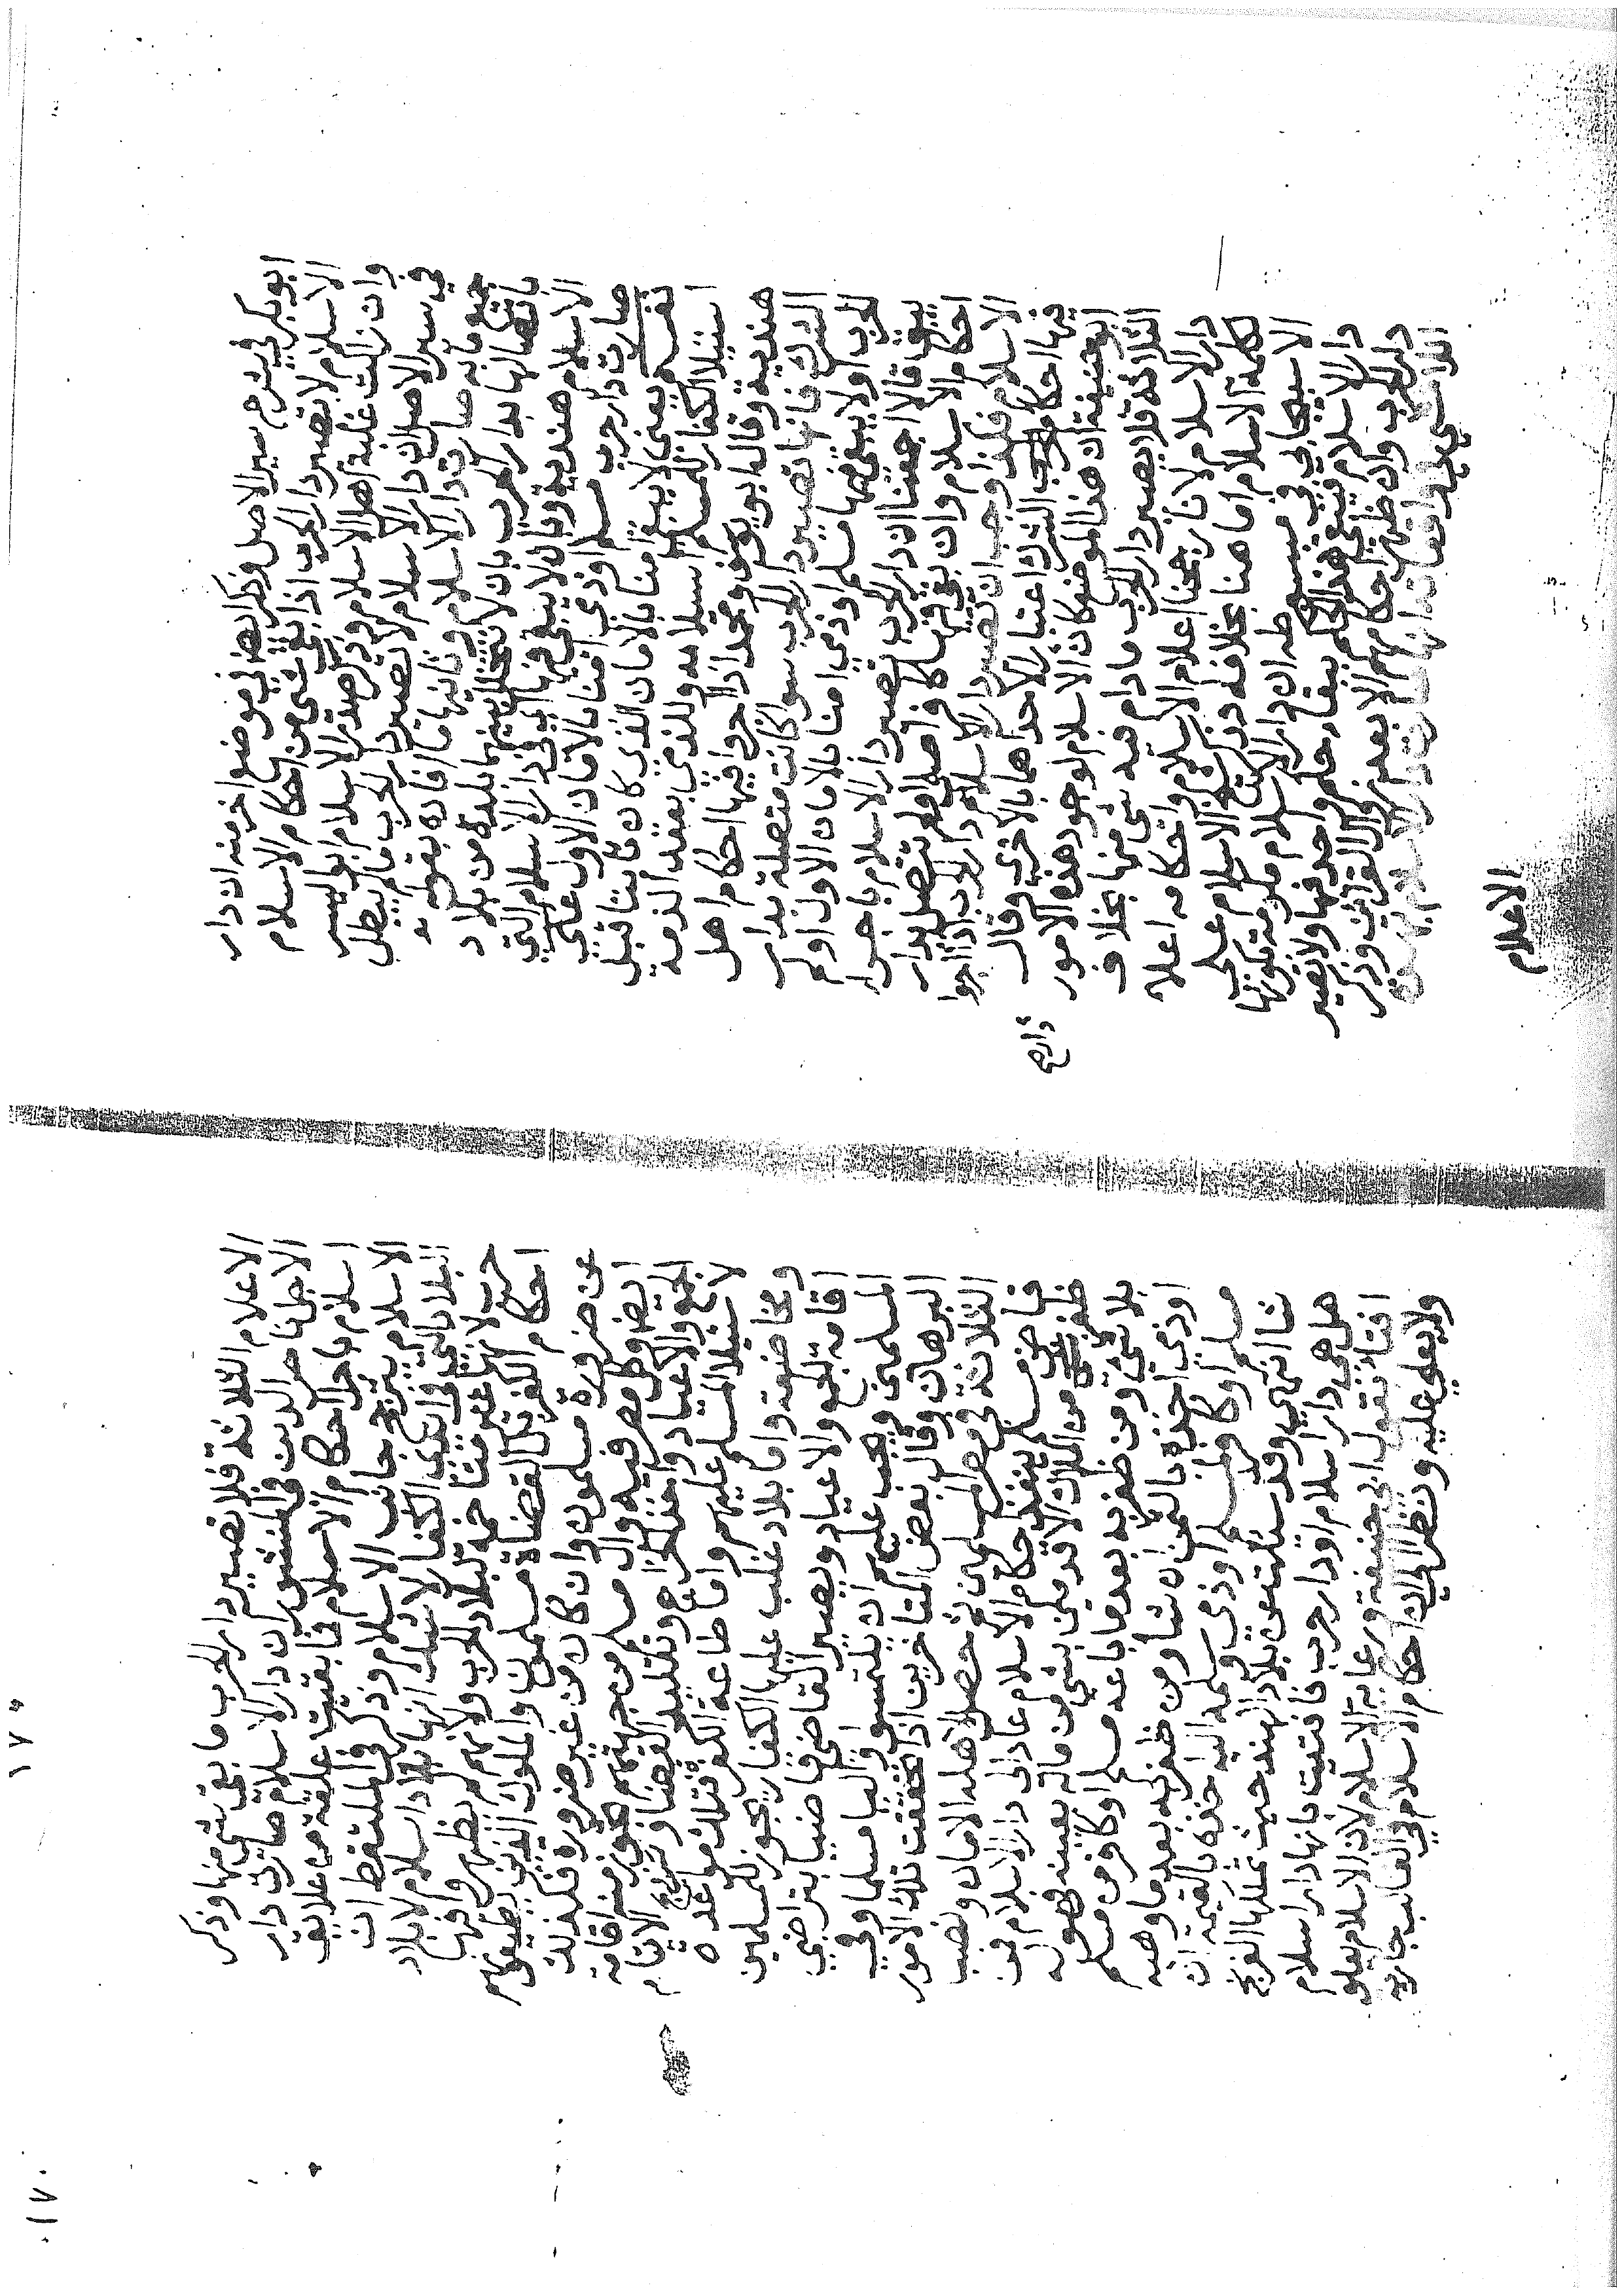 ابوبكر في شرح سير الاصل وذكر ايضا في موضع اخر منه ان دار
الاسلام لا تصير دار الحرب اذا بقي شي من احكام الاسلام
وان زالت غلبة اهل الاسلام وذكر صدر الاسلام ابو اليسر
في سير الاصل ان دار الاسلام لا تصير دار الحرب ما لم يبطل
جميع ما به صارت دار الاسلام وثانيها ما افاده بقوله
باتصالها بدار الحرب بان لا يتخلل بينهما بلدة من بلاد
الاسلام هندية وبان لا يبقى فيها اي في دار الاسلام التي
صارت دار حرب مسلم او ذمي امنا بالامان الاول على
نفسه يعني لا يبقى امنا بالامان الذي كان ثابتا قبل
استيلا الكفار للمسلم باسلامه وللذمي بعقد الذمة
هندية وقال ابو يوسف ومحمد اذا اجروا فيها احكام اهل
الشرك فانها تصير دار الحرب سوا كانت متصلة بدار
الحرب او لا يبقى فيها مسلم او ذمي امنا بالامان الاول او لم
يبق قالا اجمعنا ان دار الحرب تصير دار الاسلام باجرا
احكام الاسلام وان بقي فيها كافر اصلي ولم تتصل بدار
الاسلام فكذا وجب ان تصير دار الاسلام دار الحرب اذا اجروا
فيها احكام الشرك اعتبارا لاحداهما بالاخرى وقال
ابو حنيفة ان هذا الموضع كان الاسلام لوجود هذه الامور
دار صح
الثلاثة فلا يصير دار الحرب ما دام فيه شي منها بخلاف
دار الاسلام لانا رجحنا اعلام الاسلام واحكامه اعلا
لكلمة الاسلام اما هنا بخلافه وذكر شيخ الاسلام علي
الاسبيجابي في مبسوطه ان دار الاسلام محكومة بكونها
دار الاسلام فيبقى هذا الحكم ببقاء حكم واحد فيها ولا تصير
دار الحرب وان ظهر احكامهم الا بعد زوال القرائن وذكر
اللامشي في واقعاته انها صارت دار الاسلام بهذه
الاعلام
الاعلام الثلاثة فلا تصير دار الحرب ما بقي شي منها وذكر
الاجل ناصر الدين في المنشور ان دار الاسلام صارت دار
اسلام باجرا احكام الاسلام فما بقيت علقة من علايق
الاسلام يترجح جانب الاسلام وذكر في الملتقط ان
البلاد التي في ايدي الكفار لا شك انها بلاد اسلام لا بلاد
حرب لانها غير متاخمة لبلاد الحرب ولانهم لم يظهروا فيها
احكام الكفر بل القضاة مسلمون والملوك الذين يطيعونهم
عن ضرورة مسلمون وان كان من غير ضرورة فكذلك
ايضا وكل مصر فيه وال مسلم من جهتهم يجوز منه اقامة
الجمع والاعياد واخذ الخراج وتقليد القضا وتزويج الايام
لاستيلا المسلم عليهم واما طاعة الكفر فتلك موادعة
ومخادعة واما بلاد غلب عليها الكفار يجوز للمسلمين
اقامة الجمع والاعياد ويصير القاضي قاضيا بتراضي
المسلمين ويجب عليهم ان يلتمسوا واليا مسلما وفي
البرهان وقال بعض المتاخرين اذا تحققت تلك الامور
الثلاثة في مصر المسلمين ثم حصل لاهله الامان ونصب
قاض مسلم ينفذ احكام الاسلام عاد الى دار الاسلام فمن
ظفر من الملاك الاقدمين بشي من ماله بعينه فهو له
بلا شي ومن ظفر به بعدما باعه مسلم او كافر من مسلم
او ذمي اخذه بالثمن ان شا ومن ظفر به بعد ما وهبه
مسلم او كافر لمسلم او ذمي وسلمه اليه اخذه بالقيمة ان
شا انتهى وقد سئلت عن بلاد الهند حيث تملكها الفرنج
هل هي دار اسلام او دار حرب فافتيت بانها دار اسلام
افتاء بقول ابي حنيفة ورعاية للاسلام لان الاسلام يعلو
ولا يعلى عليه ونظرا الى ان احكام الاسلام في الغالب جارية
١٧٠
١٧٠